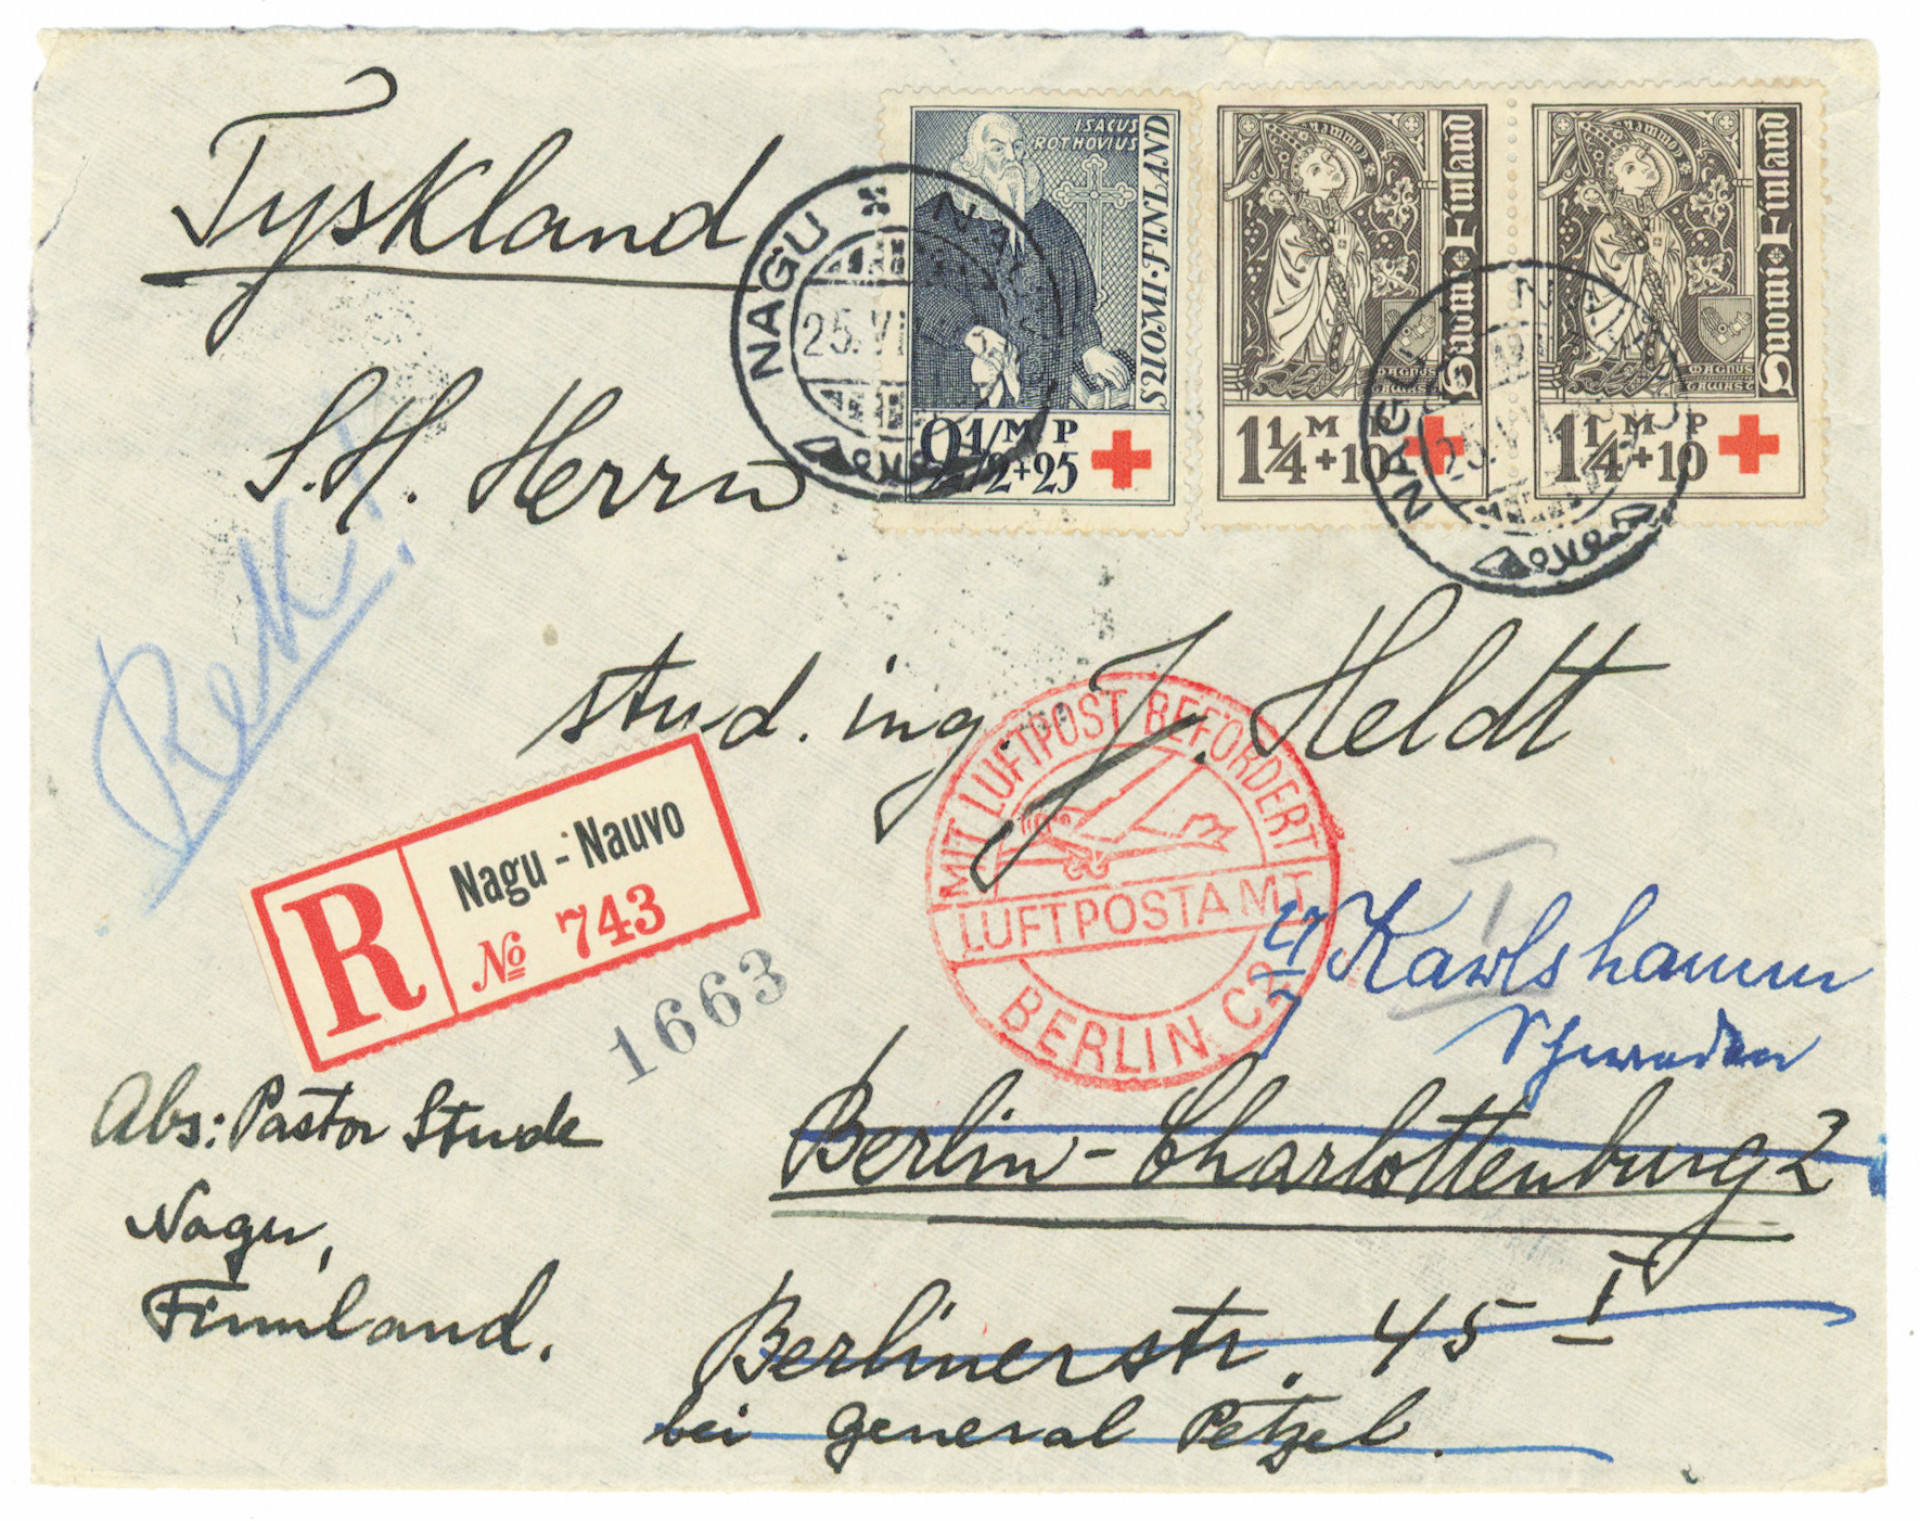 Tyskland
ISACUS
ROTHOVIUS
SUOMI·FINLAND
2 1/2 M P +25
Suomi Finland
MAGNUS
TAWAST
1 1/4 M P +10
Suomi Finland
MAGNUS
TAWAST
1 1/4 M P +10
NAGU
25.VI
NAGU
25.VI
S.H. Herrn
Rek!
stud. ing. J. Heldt
MIT LUFTPOST BEFÖRDERT
LUFTPOSTAMT
BERLIN C2
R
Nagu - Nauvo
№ 743
1663
Karlshamn
Schweden
Abs: Pastor Stude
Nagu,
Finnland.
Berlin-Charlottenburg 2
Berlinerstr. 45 I
bei General Petzel.